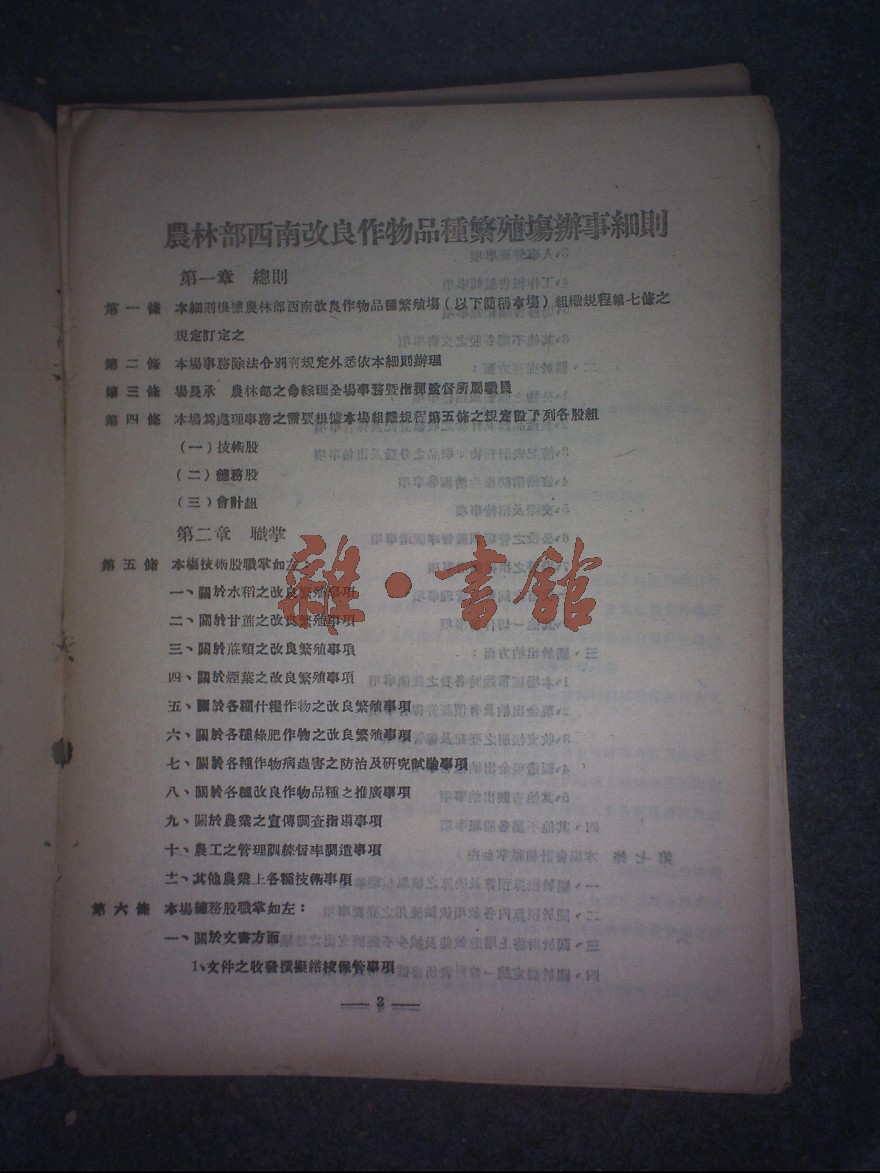 農林部西南改良作物品種繁殖場辦事細則
第一章 總則
第一條 本細則根據農林部西南改良作物品種繁殖場(以下簡稱本場)組織規程第七條之
規定訂定之
第二條 本場事務除法令別有規定外悉依本細則辦理
第三條 場長承 農林部之命綜理全場事務暨指揮監督所屬職員
第四條 本場爲處理事務之需要根據本場組織規程第五條之規定設下列各股組
(一)技術股
(二)總務股
(三)會計組
第二章 職掌
第五條 本場技術股職掌如左:
一、關於水稻之改良繁殖事項
二、關於甘蔗之改良繁殖事項
三、關於蔴類之改良繁殖事項
四、關於煙葉之改良繁殖事項
五、關於各種什糧作物之改良繁殖事項
六、關於各種綠肥作物之改良繁殖事項
七、關於各種作物病蟲害之防治及研究試驗事項
八、關於各種改良作物品種之推廣事項
九、關於農業之宣傳調查指導事項
十、農工之管理訓練督率調遣事項
十一、其他農業上各種技術事項
第六條 本場總務股職掌如左:
一、關於文書方面
1、文件之收發撰擬繕校保管事項
3
雜·書館